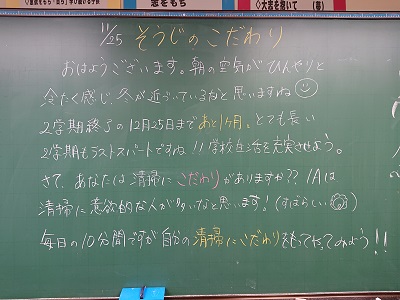 志をもち
◇大志を抱いて (夢)
11/25 そうじのこだわり
おはようございます。朝の空気がひんやりと
冷たく感じ、冬が近づいているなと思いますね
2学期終了の12月25日まであと1ヶ月。とても長い
2学期もラストスパートですね!! 学校生活を充実させよう。
さて、あなたは清掃にこだわりがありますか?? 1Aは
清掃に意欲的な人が多いなと思います!(すばらしい)
毎日の10分間ですが自分の清掃にこだわりをもってやってみよう!!